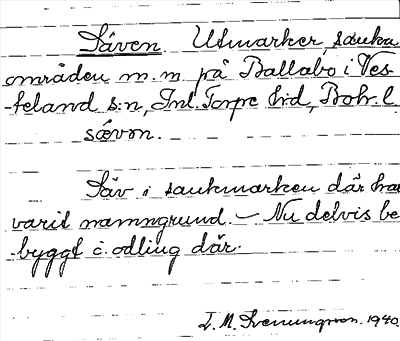 Säven. Utmarker, sauka
områden m.m. på Ballabo i Ves-
-teland s:n, Inl. Torpe hd, Boh. l.
sä̀vən.
Säv i sankmarken där har
varit namngrund. – Nu delvis be
-byggt o. odling där.
I. M. Svenungsson. 1940.